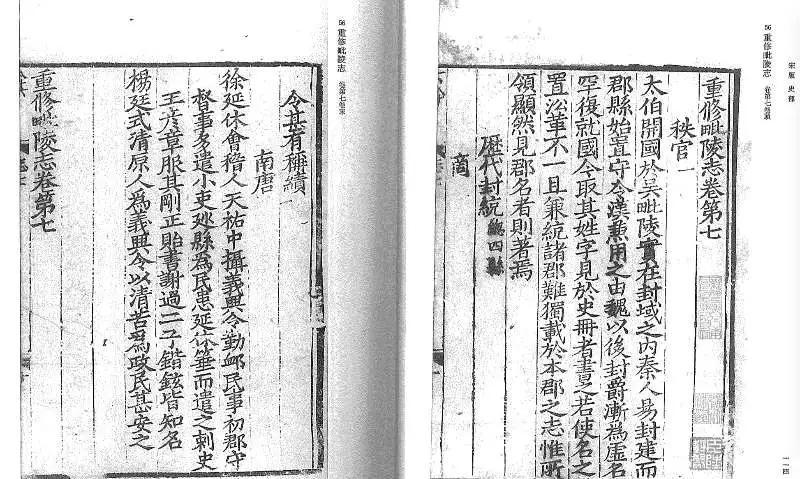 宋版 史部
一一四
56 重修毗陵志 卷第七卷首
重修毗陵志卷第七
秩官一
太伯開國於吳毗陵實在封域之内秦人易封建而
郡縣始置守令漢兼用之由魏以後封爵漸為虛名
罕復就國今取其姓字見於史冊者書之若使名之
置㳂革不一且兼統諸郡難獨載於本郡之志惟所
領顯然見郡名者則著焉
歷代封統 四縣
商
56 重修毗陵志 卷第七卷末
令甚有稱績
南唐
徐延休會稽人天祐中攝義興令勤邮民事初郡守
督事多遣小吏廵縣為民患延休箠而遣之刺史
王彥章服其剛正貽書謝過二子鍇鉉皆知名
楊廷式清原人為義興令以清苦爲政民甚安之
重修毗陵志卷第七